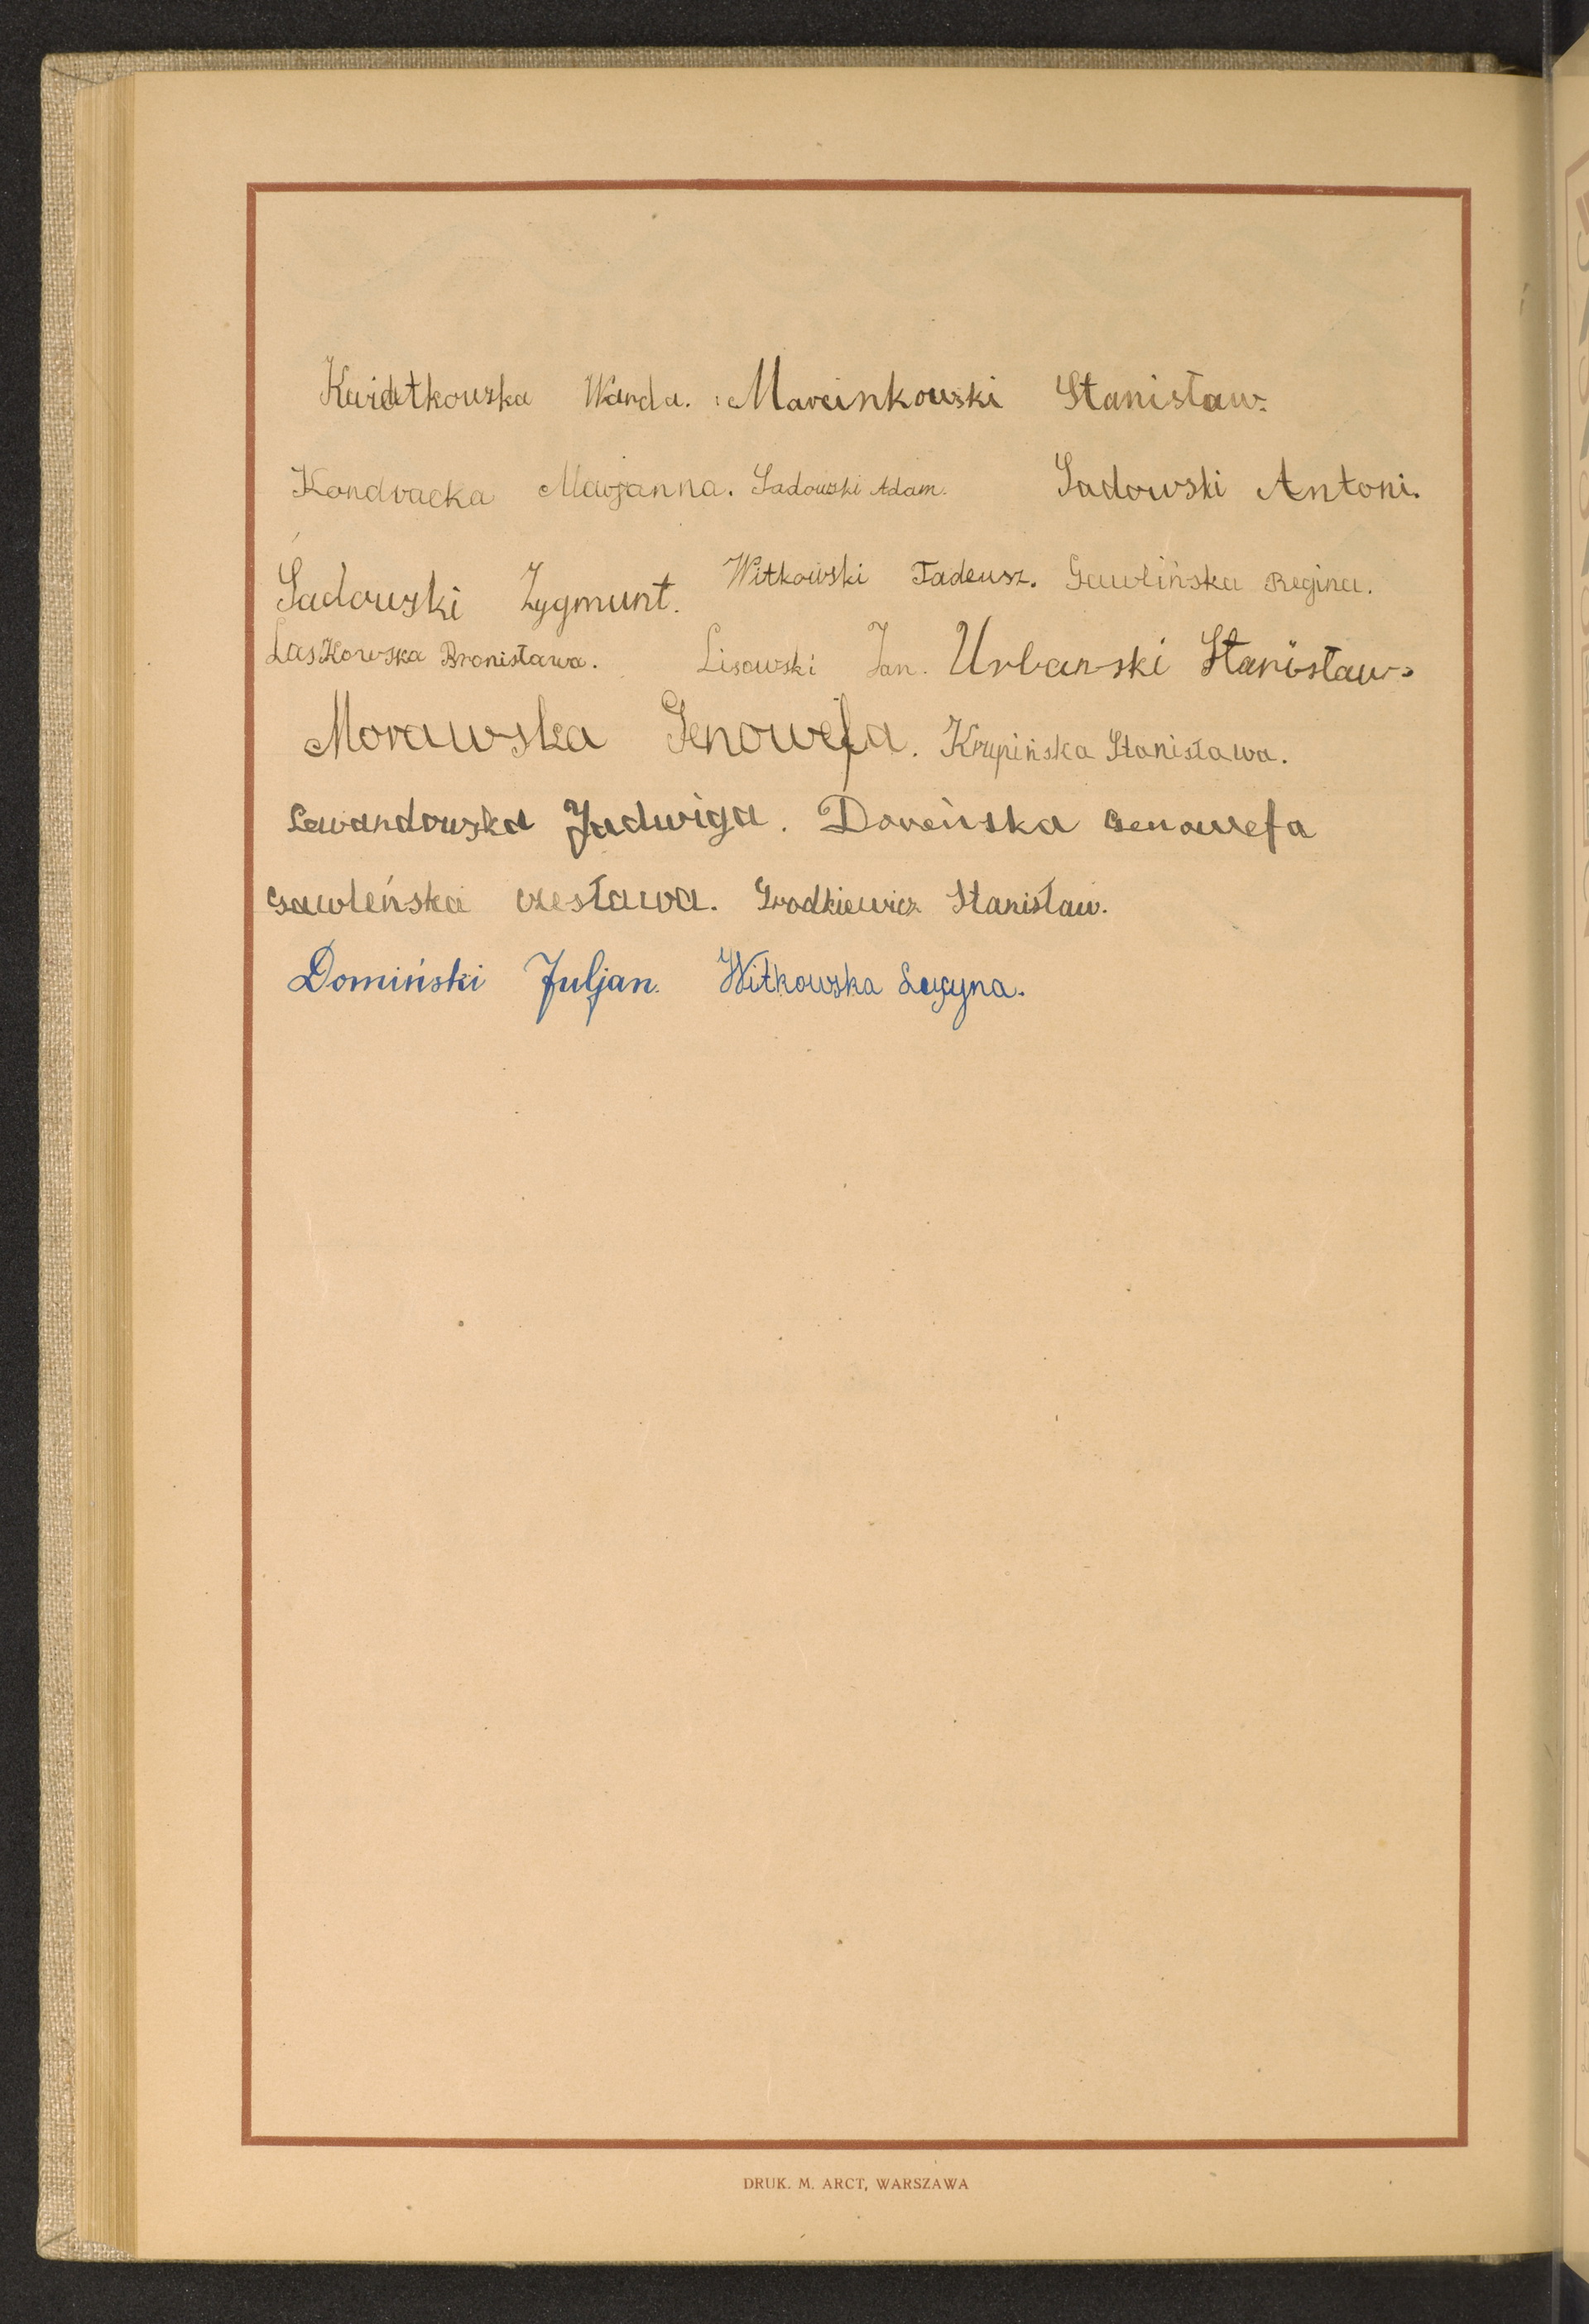 Kwiatkowska Wanda. Marcinkowski Stanisław.
Kondracka Marjanna. Sadowski Adam. Sadowski Antoni.
Sadowski Zygmunt. Witkowski Tadeusz. Gawlińska Regina.
Laskowska Bronisława. Lisowski Jan. Urbanski Stanisław.
Morawska Genowefa. Krupińska Stanisława.
Lewandowska Jadwiga. Doreńska Genowefa
Gawleńska czesława. Grodkiewicz Stanisław.
Domiński Juljan. Witkowska Lucyna.
DRUK. M. ARCT, WARSZAWA